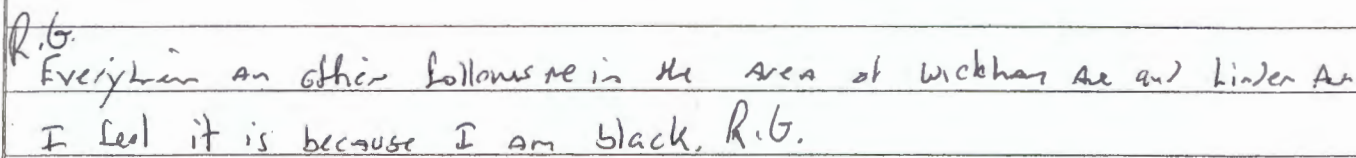 R.G.
Everytime an officer follows me in the area of Wickham Ave and Linden Ave
I feel it is because I am black. R.G.